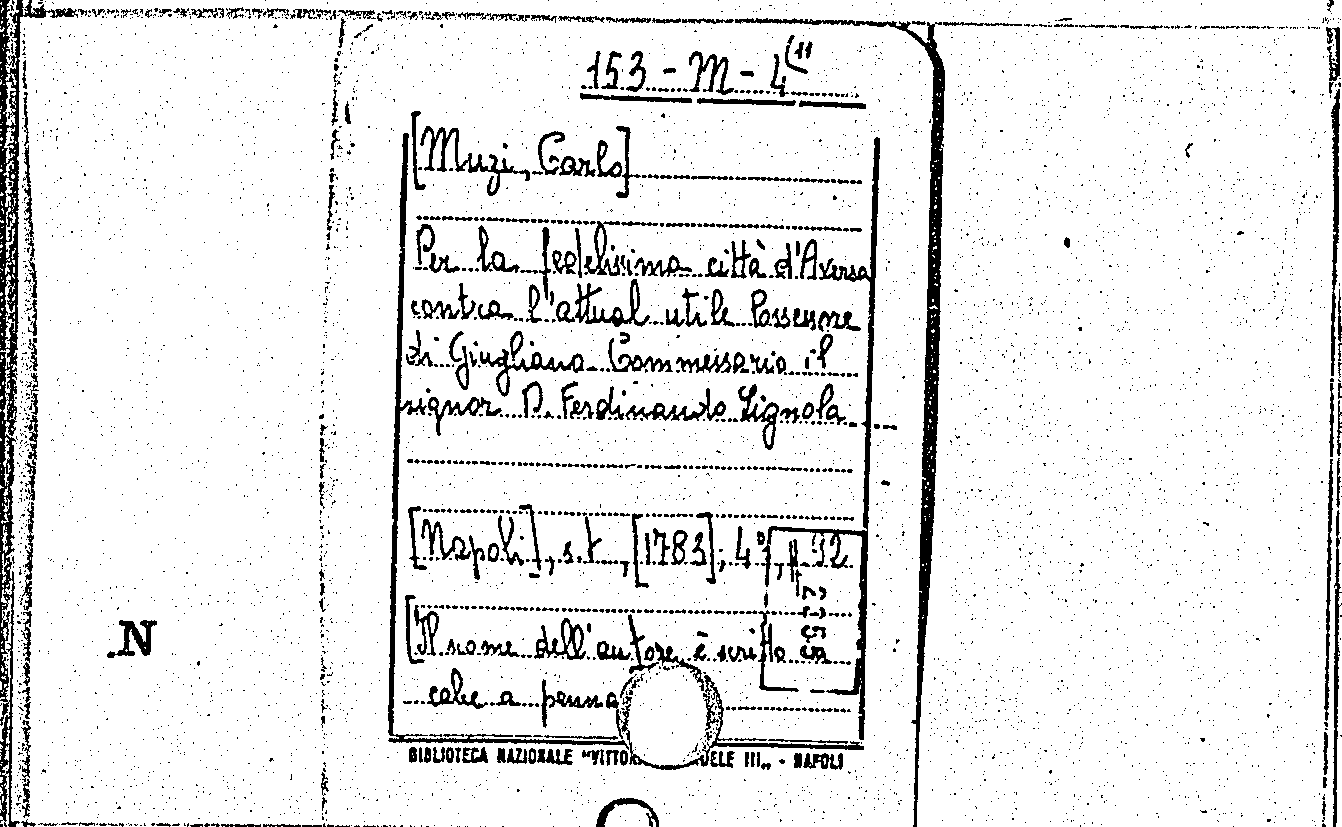 153 - M - 4 (11
[Muzi, Carlo]
Per la fedelissima città d'Aversa
contra l'attual utile Possessore
di Giugliano Commessario il
signor D. Ferdinando Lignola
[Napoli], s.t., [1783]; 4°, p. 92
[Il nome dell'autore è scritto in
calce a penna
.N
BIBLIOTECA NAZIONALE "VITTORIO EMANUELE III„ - NAPOLI